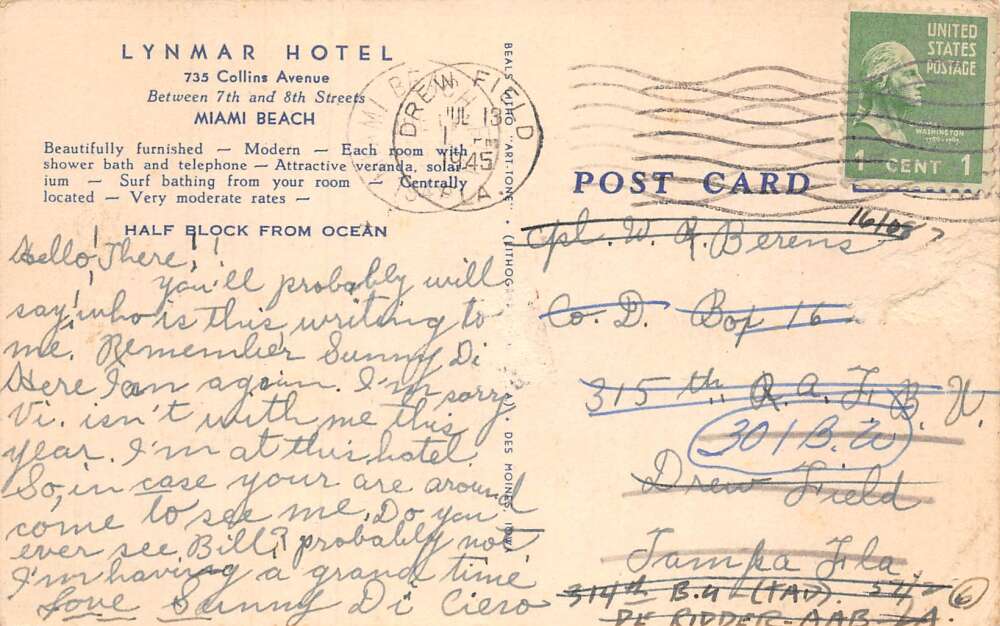 LYNMAR HOTEL
735 Collins Avenue
Between 7th and 8th Streets
MIAMI BEACH
Beautifully furnished — Modern — Each room with
shower bath and telephone — Attractive veranda, solar-
ium — Surf bathing from your room — Centrally
located — Very moderate rates —
HALF BLOCK FROM OCEAN
Hello There!!
you'll probably will
say, who is this writing to
me. Remember Sunny Di
Here I am again. I'm sorry
Vi. isn't with me this
year. I'm at this hotel
So, in case your are around
come to see me. Do you
ever see Bill? probably not,
I'm having a grand time
Love Sunny Di Ciero
BEALS LITHO "ART-TONE"
DES MOINES, IOWA
DREW FIELD
JUL 13
1945
FLA.
MIAMI
UNITED
STATES
POSTAGE
WASHINGTON
1 CENT 1
POST CARD
Cpl. W. R. Berens
Co. D. Bop 16
315th R.A.F. B.U.
301 B.W
Drew Field
Tampa Fla.
314th B.U (TAD).
DE RIDDER-AAB-LA.
6